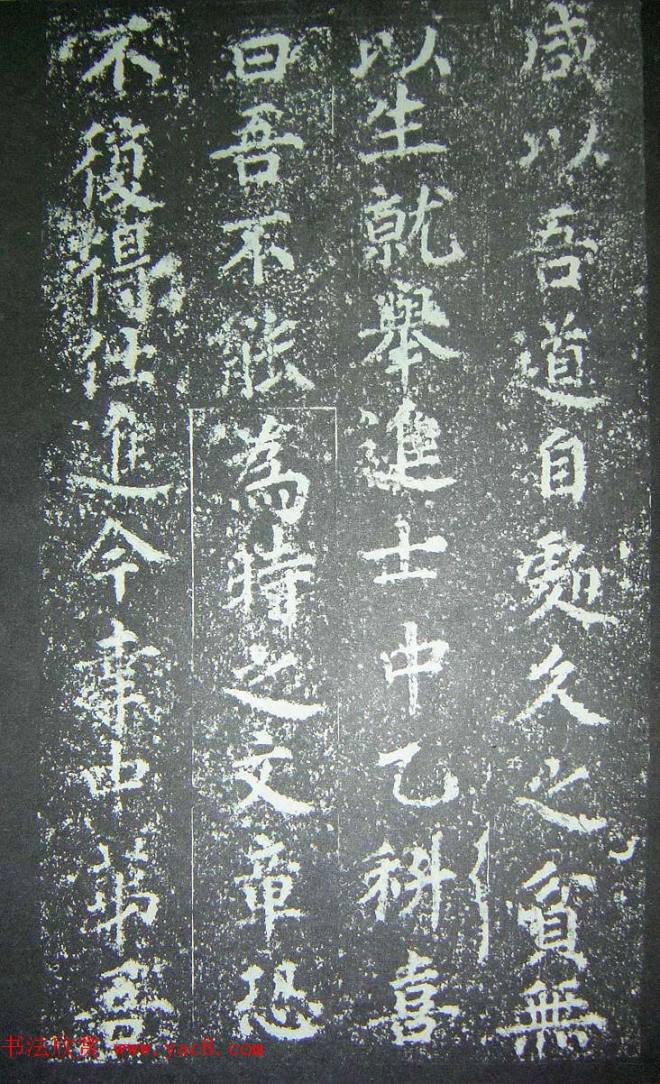 咸以吾道自勉久之貧無
以生就舉進士中乙科喜
曰吾不能為時之文章恐
不復得仕進今幸中第吾
书法欣赏 www.yac8.com